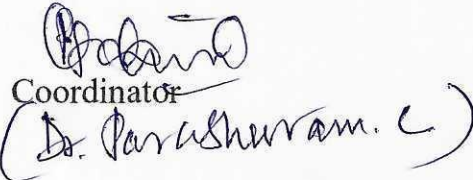 Coordinator
(Dr. Parashuram. C)